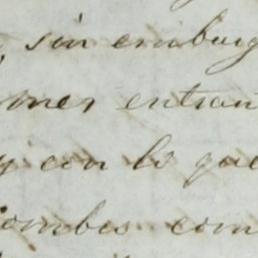 sin embarg
ones entran
y con lo que
ombes com